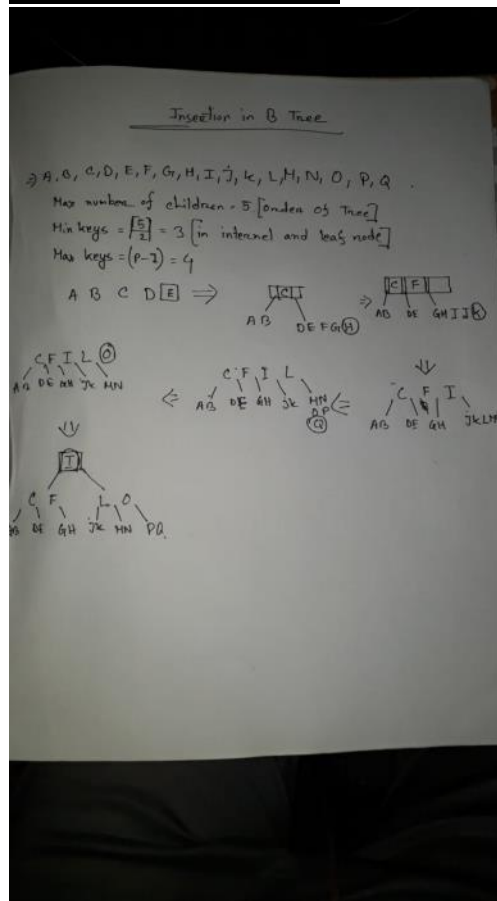 Insertion in B Tree
⇒ A, B, C, D, E, F, G, H, I, j, k, L, M, N, O, P, Q .
Max number of children = 5 [order of Tree]
Min keys = ⌈5/2⌉ = 3 [in internel and leaf node]
Max keys = (P-1) = 4
A B C D E ⇒ C ⇒ C F
AB DEFGH AB DE GHIJK
C F I L O ⇐ C F I L ⇐ C F I
AB DE GH jk MN AB DE GH jk MN AB DE GH jkLM
OP
Q
I
C F L O
AB DE GH jk MN PQ.